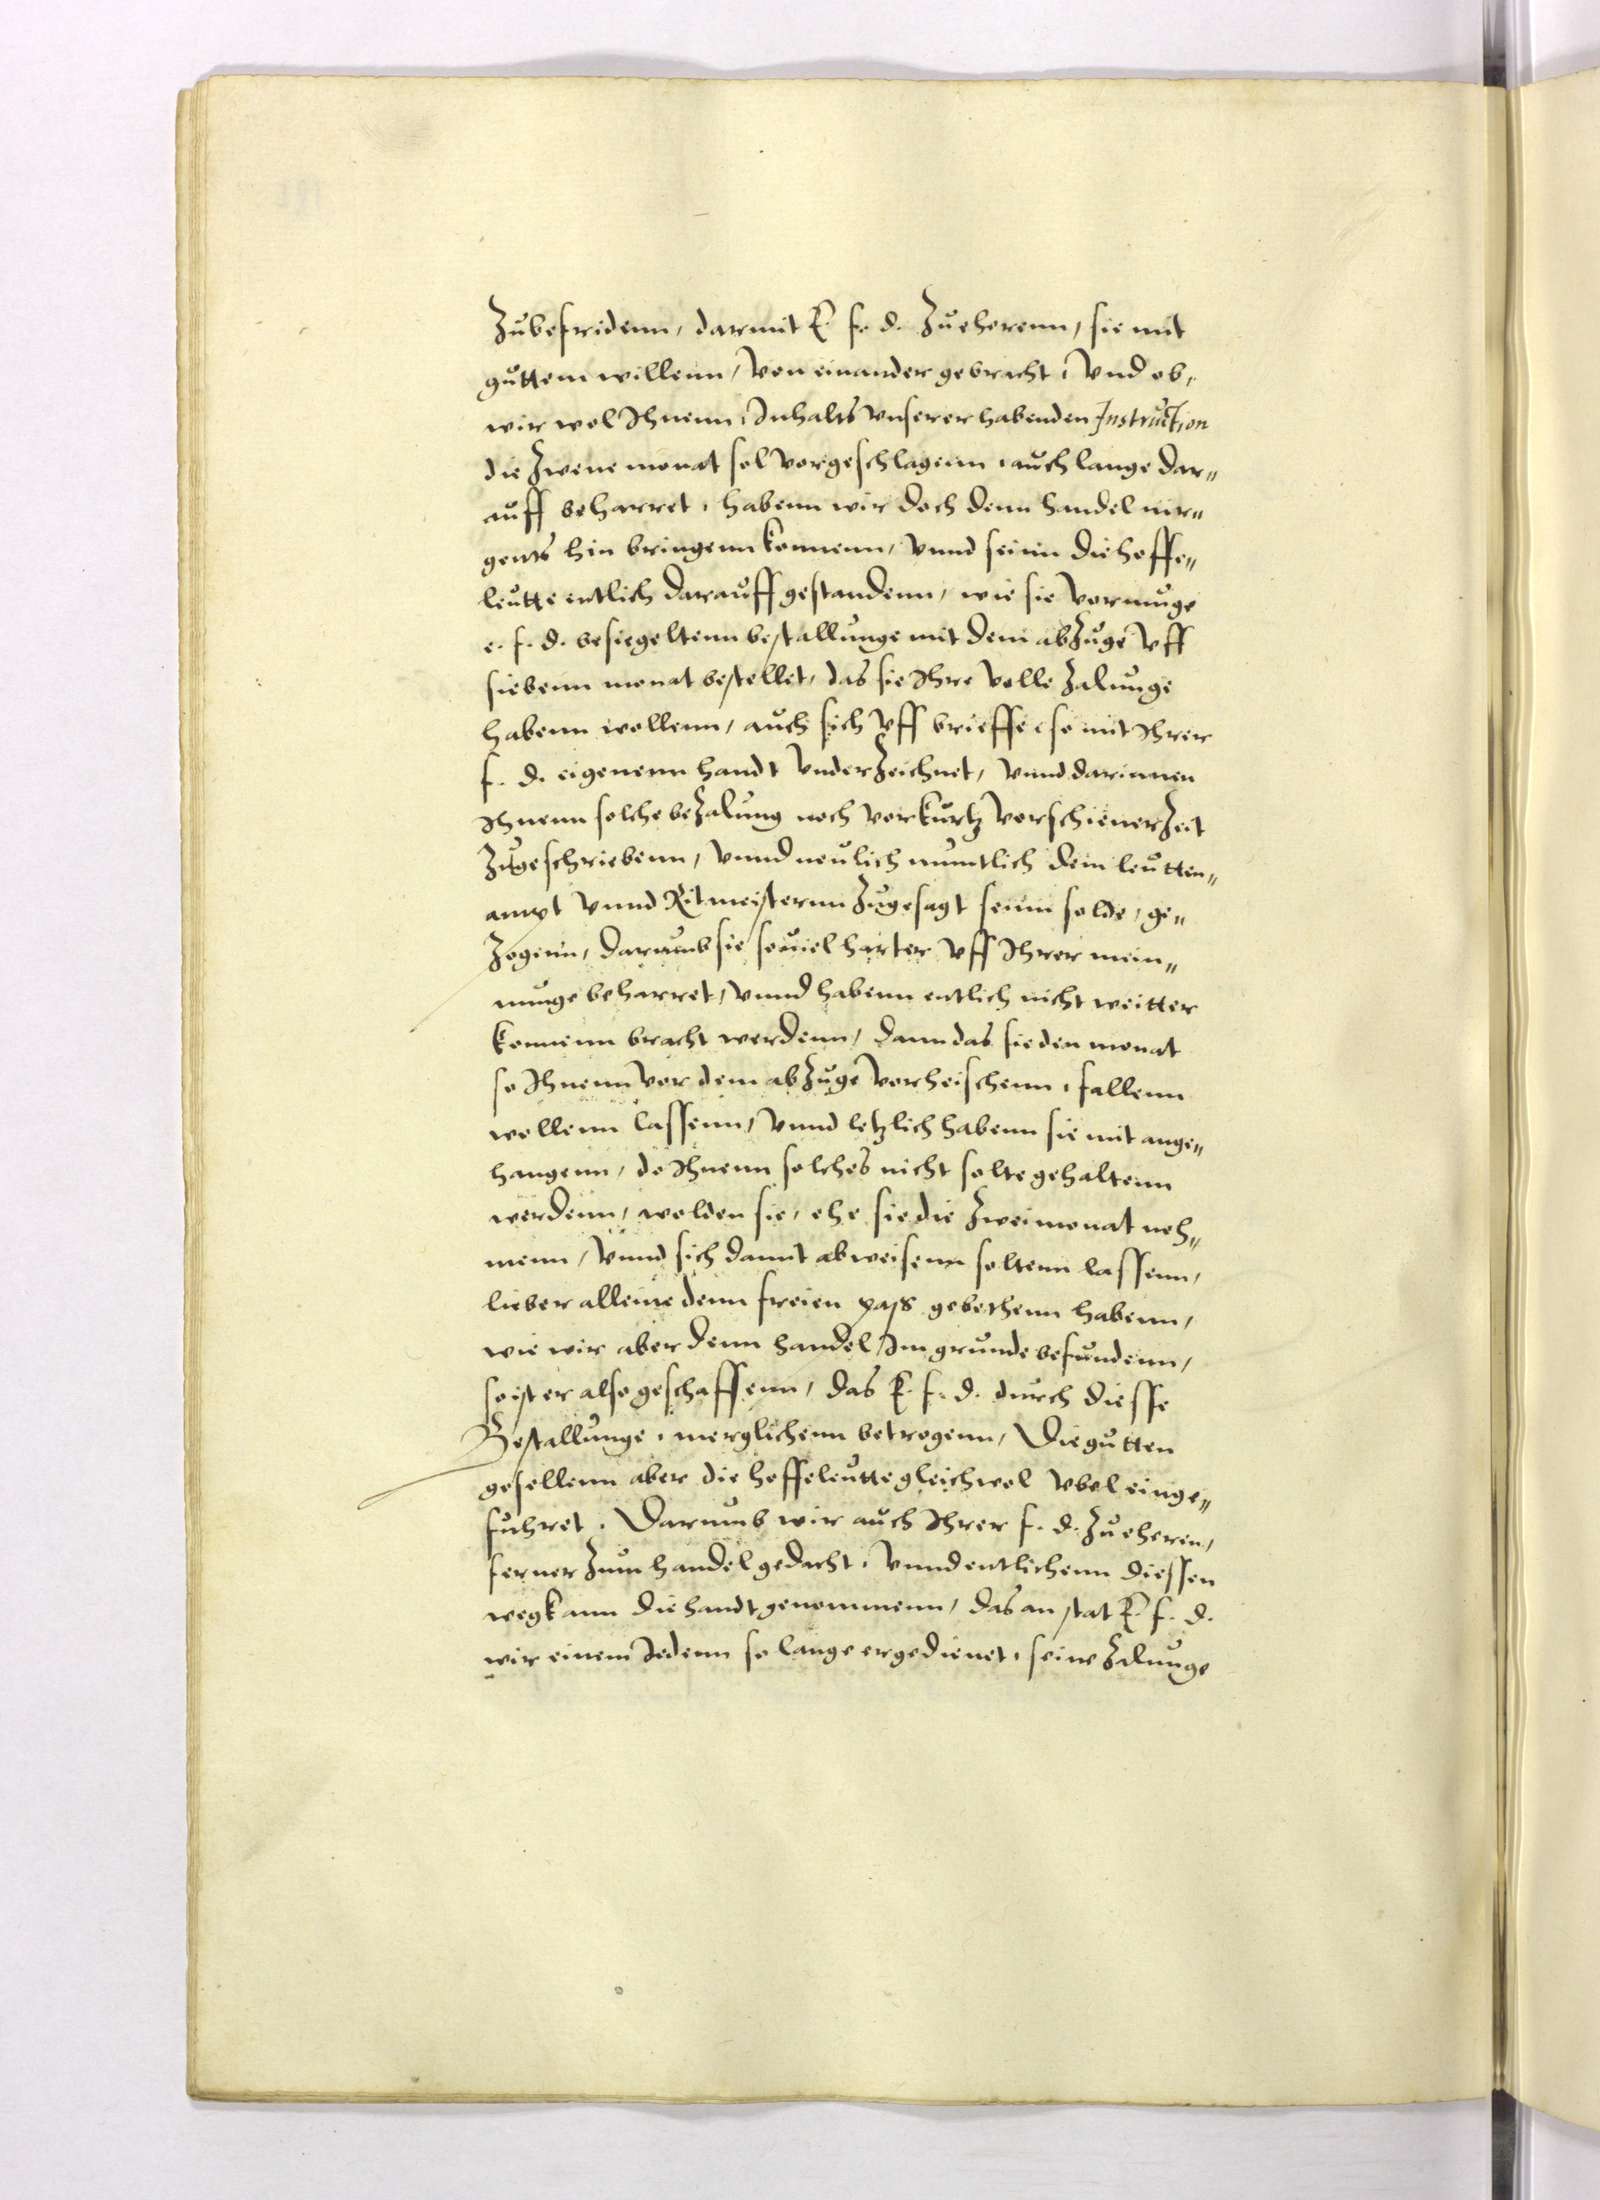 Zubefridenn, darmit E. f. d. Zu eherenn, sie mit
guttem willenn, von einander gebracht, Vnd ob,
wir wol Ihnenn, Inhalts vnserer habenden Instruction
die Zwene monat sol vorgeschlagenn, auch lange dar„
auff beharret, habenn wir doch denn handel nir„
gents hin bringenn konnenn, Vnnd seinn die hoffe„
leutte entlich darauff gestandenn, wie sie vormuge
e. f. d. besiegeltenn bestallunge mit dem abZuge vff
siebenn monat bestellet, das sie Ihre volle Zalunge
habenn wollenn, auch sich vff brieffe, so mit Ihrer
f. d. eigenenn handt vnderZeichnet, vnnd darinnen
Ihnenn solche beZalung noch vor kurtz vorschiener Zeit
Zugeschriebenn, vnnd neulich muntlich dem leutten„
ampt vnnd Ritmeisternn Zugesagt seinn solde, ge„
Zogenn, darumb sie souiel harter vff Ihrer mein„
nunge beharret, vnnd habenn entlich nicht weitter
konnenn bracht werdenn, dann das sie den monat
so Ihnenn vor dem abZuge vorheischenn, fallenn
wollenn lassenn, vnnd letzlich habenn sie mit ange„
hangenn, do Ihnenn solches nicht solte gehaltenn
werdenn, wolden sie, ehe sie die Zwei monat neh„
menn, vnnd sich damit abweisenn soltenn lassenn,
lieber alleine denn freien pass gebethenn habenn,
wie wir aber denn handel, Im grunde befundenn,
so ist er also geschaffenn, das E. f. d. durch diesse
Bestallunge, merglichenn betrogenn, Die gutten
gesellenn aber die hoffeleutte gleichwol vbel einge„
fuhret, Darumb wir auch Ihrer f. d. Zu eheren,
ferner Zum handel gedacht, Vnnd entlichenn diessen
wegk ann die handt genommenn, das an stat E. f. d.
wir einem Iedenn so lange er gedienet, seine Zalunge